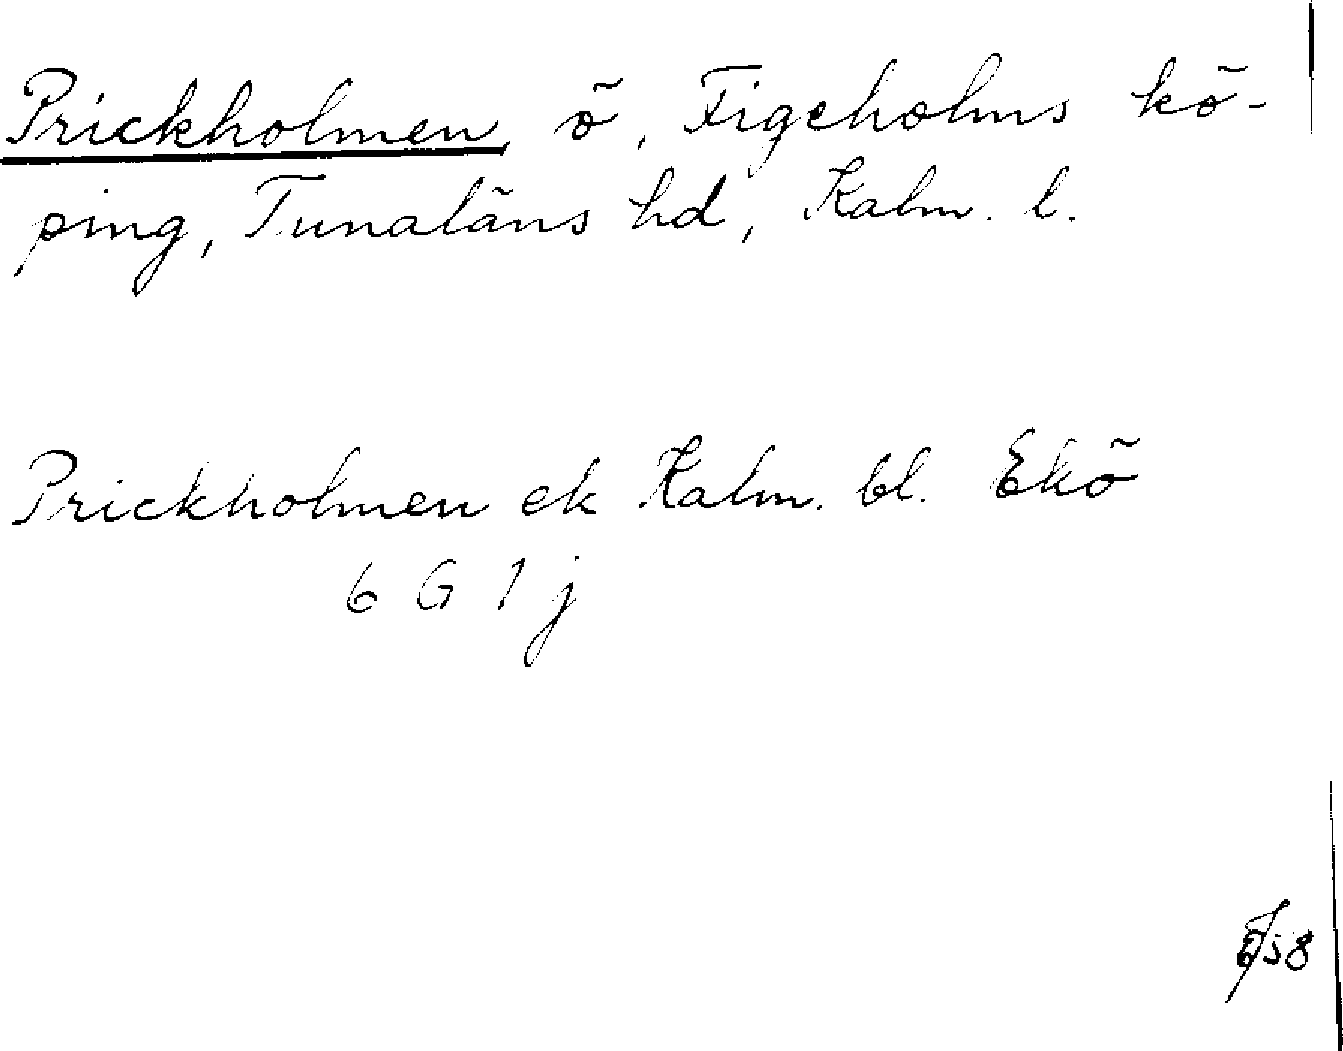 Prickholmen, ö, Figeholms kö-
ping, Tunaläns hd, Kalm. l.
Prickholmen ek Kalm. bl. Ekö
6 G 1 j
58